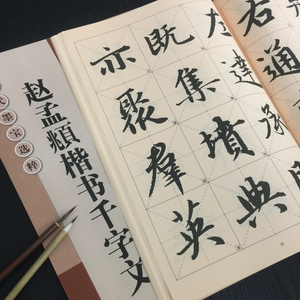 右通
左達承明
既集墳典
亦聚羣英
代墨宝选粹
赵孟頫楷书千字文